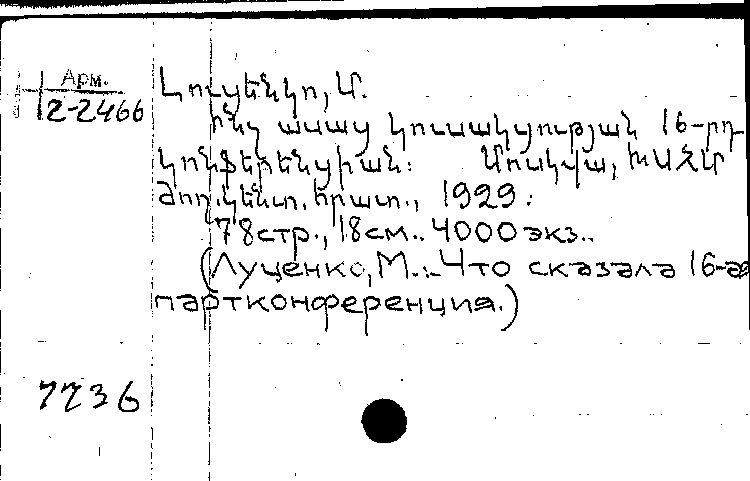 Арм.
12-2466
Լուցենկո, Մ.
Ինչ ասաց կուսակցության 16-րդ
կոնֆերենցիան: Մոսկվա, ԽՍՀՄ
ժող. կենտ. հրատ., 1929:
78 стр., 18 см.. 4000 экз..
(Луценко, М.:- Что сказала 16-ая
партконференция.)
7736